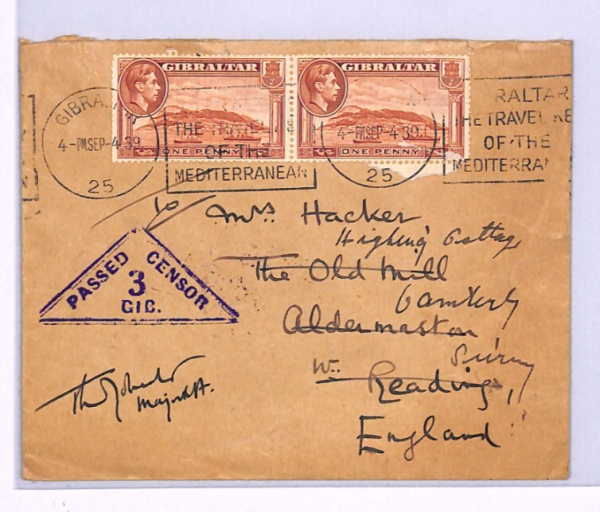 GIBRALTAR GIBRALTAR
ONE PENNY ONE PENNY
GIBRALTAR
4-PM SEP-4-39
25
THE TRAVEL KEY
OF THE
MEDITERRANEAN
4-PM SEP-4-39
25
RALTAR
THE TRAVEL KE
OF THE
MEDITERRAN
to
Mrs Hacker
Cottage
The Old Mill
Camberly
Aldermaston
Surrey
Nr. Reading,
England
PASSED CENSOR
3
GIB.
Major RA.